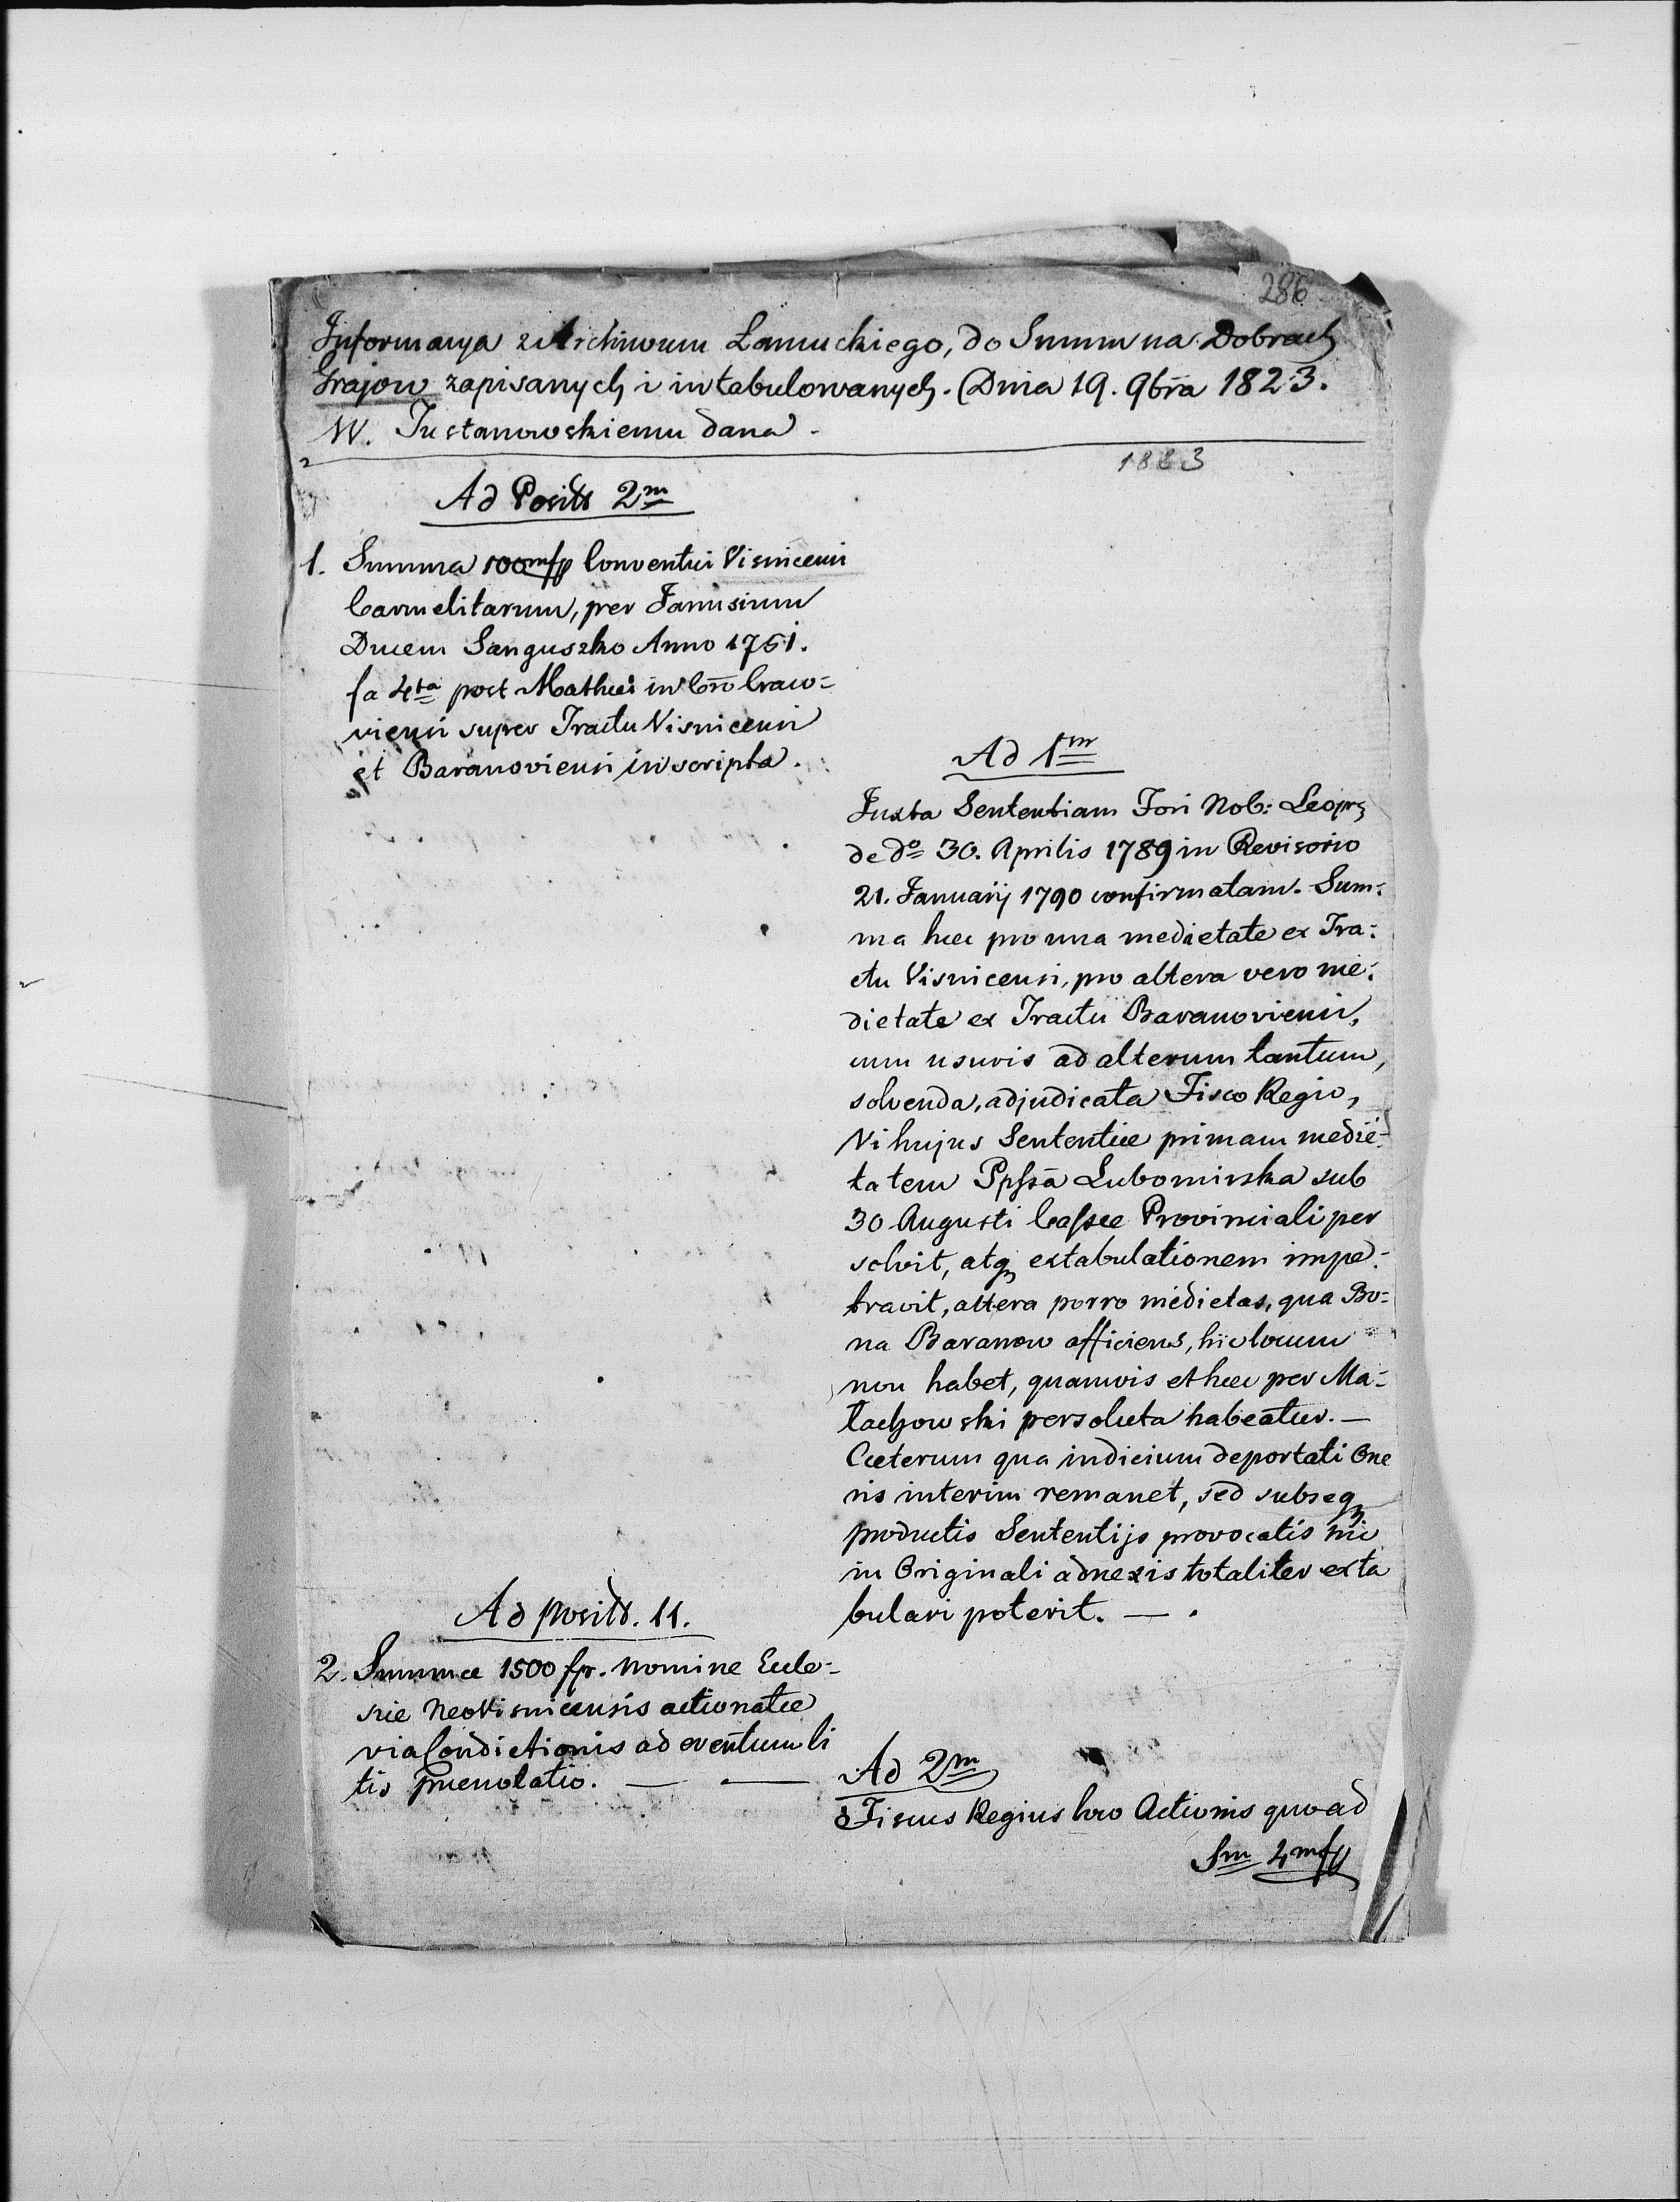 286
Informacya z Archiwum Łańuckiego, do Summ na Dobrach
Grajow zapisanych i intabulowanych. Dnia 19. 9bra 1823.
W. Justanowskiemu dana.
1823
Ad Positt 2m
1. Summa 100mfp Conventui Visnicensi
Carmelitarum, per Janusium
Ducem Sanguszko Anno 1751.
fa 4ta post Mathei in Crō Craco=
viensi super Tractu Visnicensi
et Baranoviensi inscripta.
Ad 1m
Juxta Sententiam Fori Nob: Leopr
de do 30. Aprilis 1789 in Revisorio
21. Januarij 1790 confirmatam. Sum=
ma hæc pro una medietate ex Tra=
ctu Visnicensi, pro altera vero me=
dietate ex Tractu Baranoviensi,
cum usuris ad alterum tantum,
solvenda, adjudicata Fisco Regio,
Vi hujus Sententiæ primam medie=
tatem Ppssa Lubomirska sub
30 Augusti Cassæ Provinciali per
solvit, atq extabulationem impe=
travit, altera porro medietas, qua Bo=
na Baranow afficiens, hic locum
non habet, quamvis et hæc per Ma=
łachowski persoluta habeatur. —
Cæterum qua indicium deportati One
ris interim remanet, sed subseq
productis Sententijs provocatis hic
in Originali adnexis totaliter exta
bulari poterit. — .
Ad positt. 11.
2. Summæ 1500 fp. nomine Eccle=
siæ NeoVisnicensis actionatæ
via Condictionis ad eventum li
tis prænotatio. — —
Ad 2m
Fiscus Regius loco Actionis quoad
Sm 4mfp